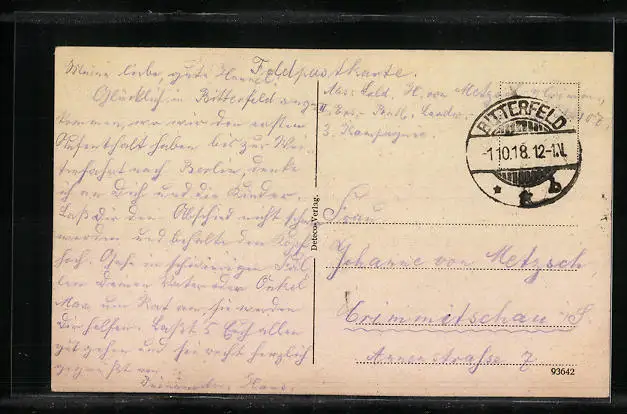 Meine liebe, gute Hanni!
Glücklich in Bitterfeld ange
kommen, wo wir den ersten
Aufenthalt haben bis zur Wei-
terfahrt nach Berlin, denke
ich an Dich und die Kinder.
Laß Dir den Abschied nicht schwer
werden und behalte den Kopf
hoch. Gehe in schwierigen Fäl
len Deinen Vater oder Onkel
Max um Rat an, sie werden
Dir helfen. Laßt es Euch allen
gut gehen und sei recht herzlich
gegrüßt von
Hans.
Feldpostkarte.
Abs: Sold. H. von Metzsch
II. Ers. Batl. Landw. 107
3. Kompagnie.
BITTERFELD
-1.10.18. 12-1.N.
* b
Deteco-Verlag.
Frau
Johanne von Metzsch
Crimmitschau i/S.
Annenstraße 7
93642